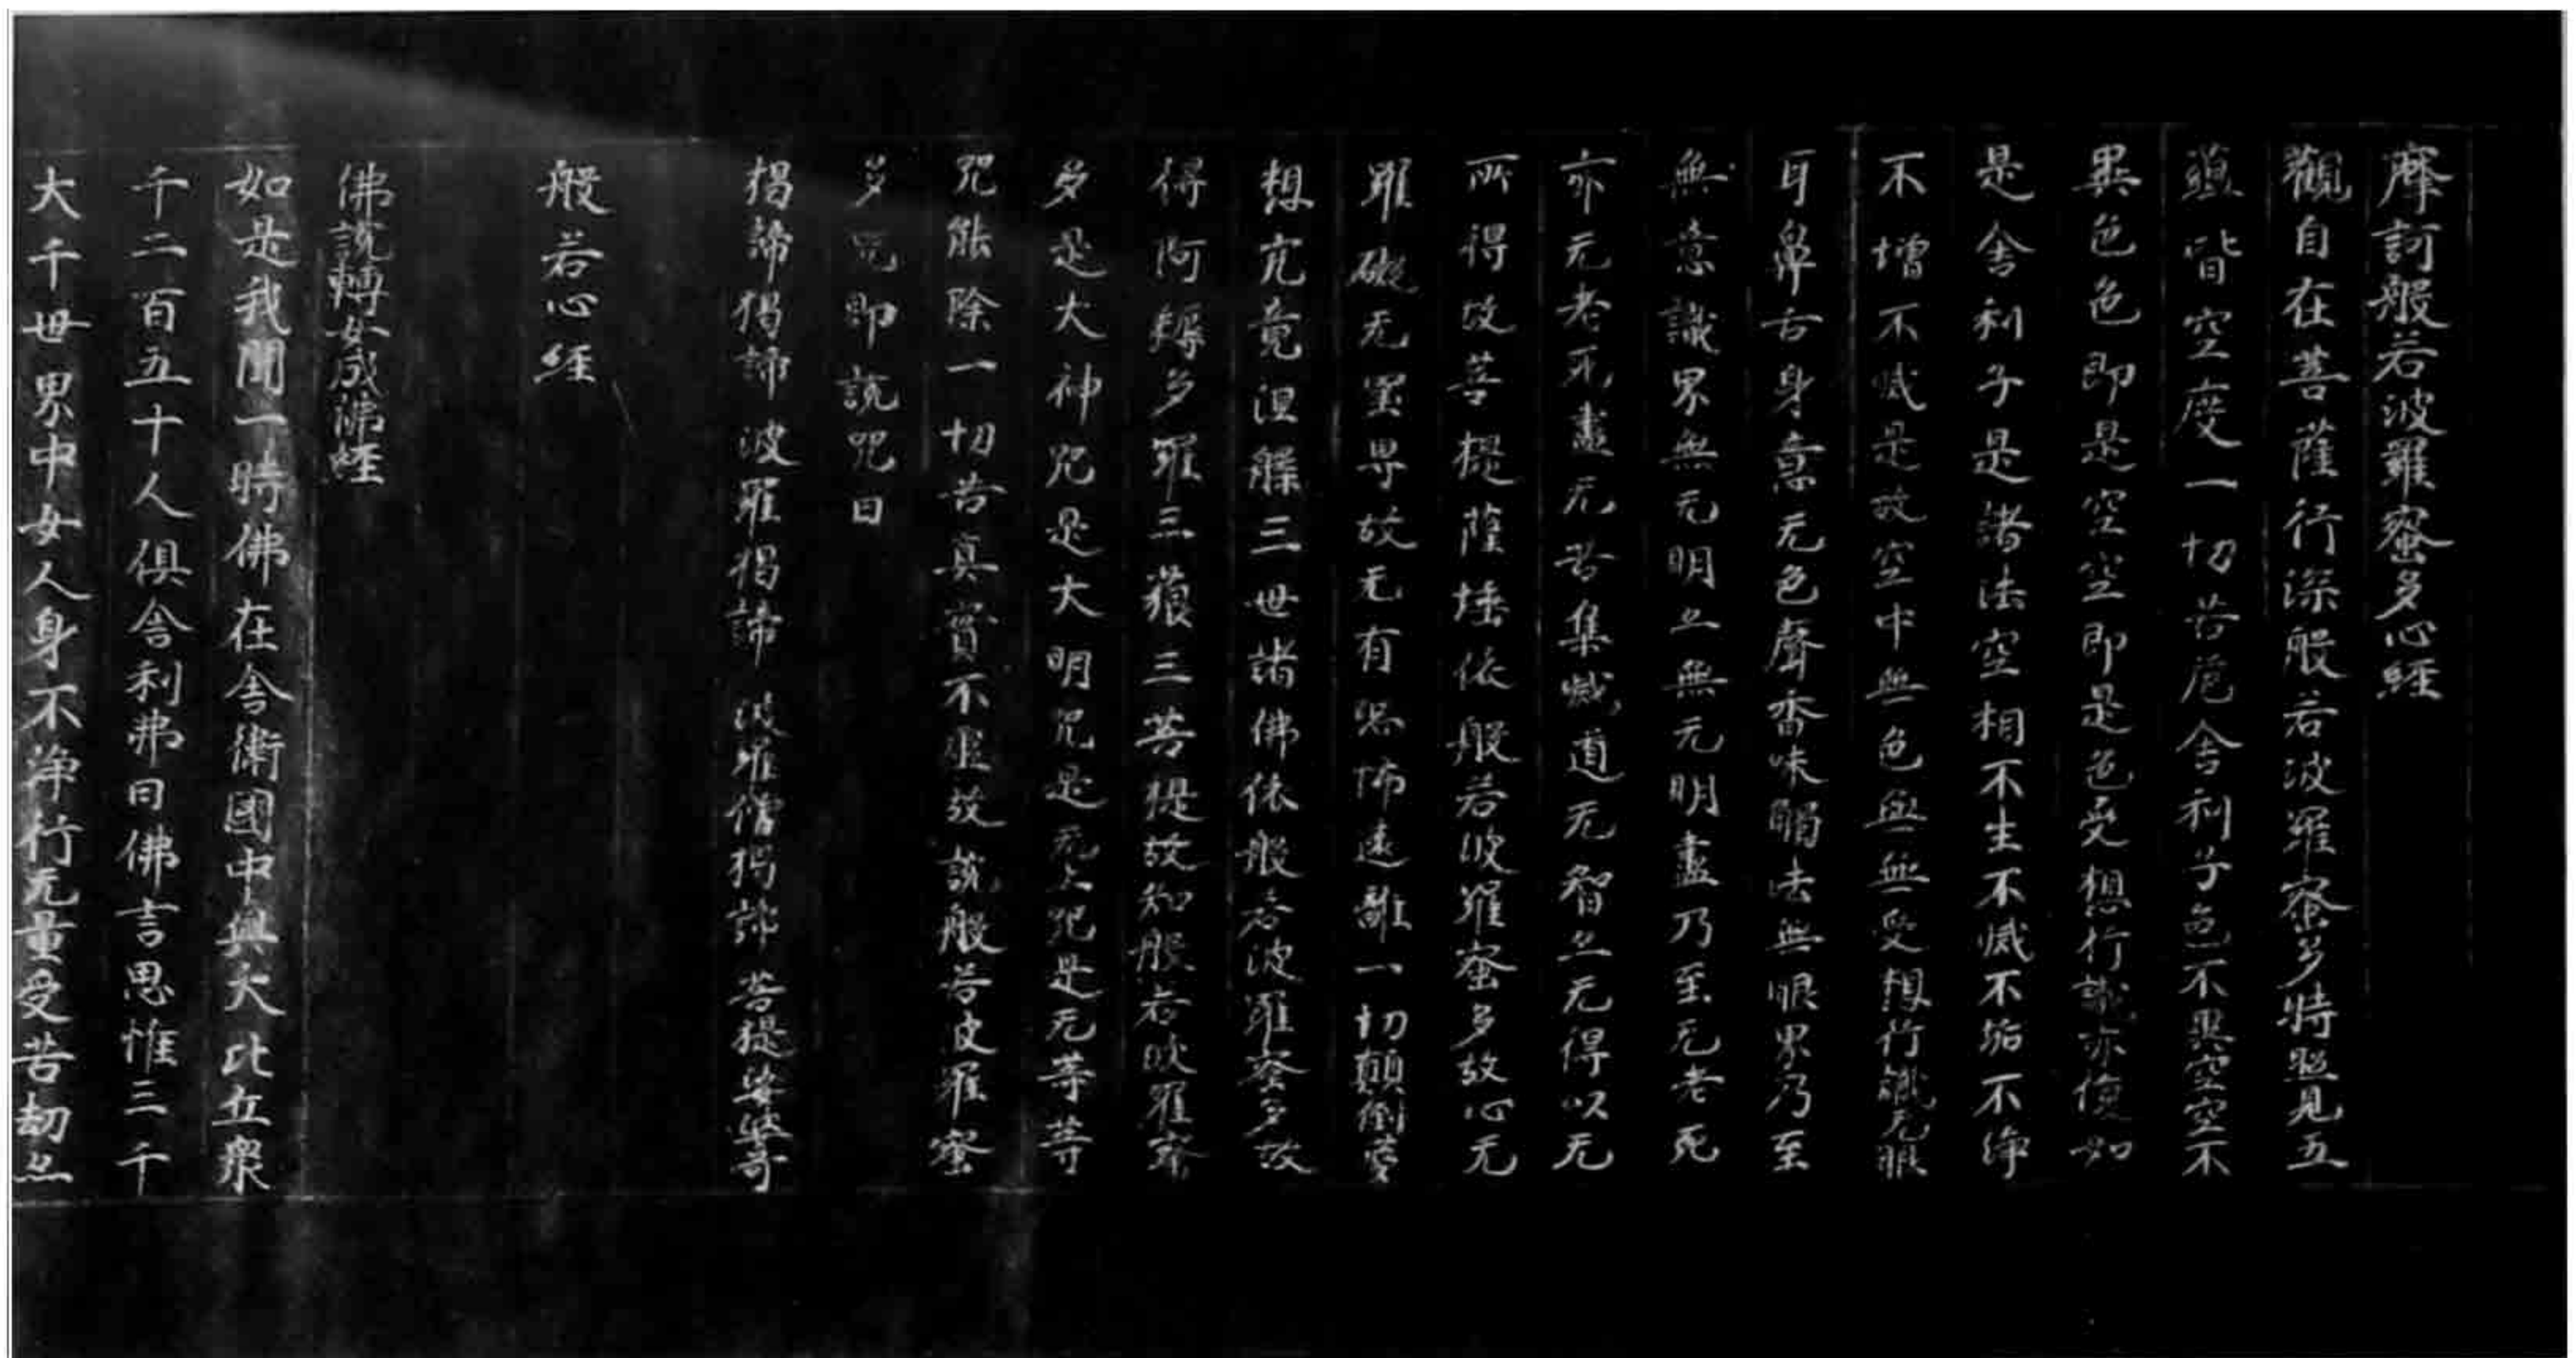 摩訶般若波羅蜜多心經
觀自在菩薩行深般若波羅蜜多時照見五
蘊皆空度一切苦厄舍利子色不異空空不
異色色即是空空即是色受想行識亦復如
是舍利子是諸法空相不生不滅不垢不净
不增不減是故空中無色無無受想行識无眼
耳鼻舌身意无色聲香味觸法無眼界乃至
無意識界無无明亦無无明盡乃至无老死
亦无老死盡无苦集滅道无智亦无得以无
所得故菩提薩埵依般若波羅蜜多故心无
罣礙无罣㝵故无有恐怖遠離一切顛倒夢
想究竟涅槃三世諸佛依般若波羅蜜多故
得阿耨多羅三藐三菩提故知般若波羅蜜
多是大神咒是大明咒是无上咒是无等等
咒能除一切苦真實不虛故說般若波羅蜜
多咒即說咒曰
揭諦揭諦 波羅揭諦 波羅僧揭諦 菩提娑婆訶
般若心經
佛說轉女成佛經
如是我聞一時佛在舍衛國中與大比丘衆
千二百五十人俱舍利弗白佛言思惟三千
大千世界中女人身不淨行无量受苦劫